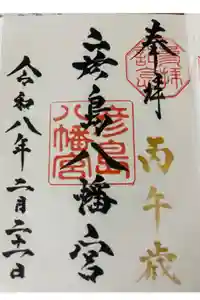 奉拝
丙午歳
彦島八幡宮
彦島
八幡宮
令和八年二月二十一日